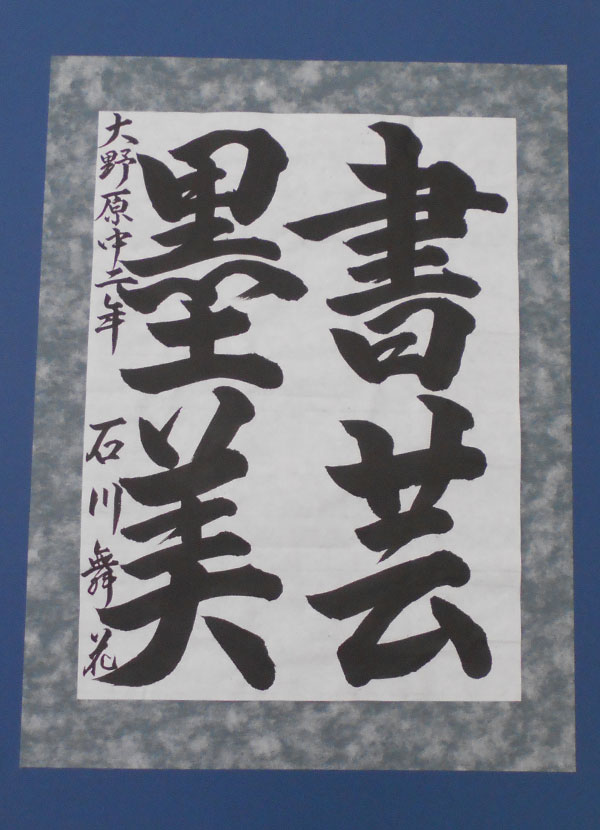 書芸
墨美
大野原中二年 石川舞花